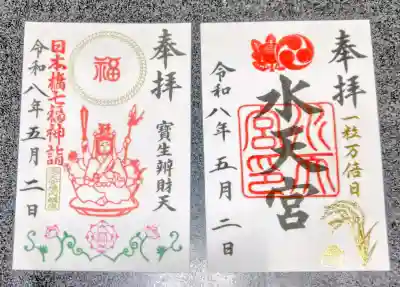 奉拝
寳生辨財天
福
日本橋七福神詣
令和八年五月二日
奉拝
一粒万倍日
水天宮
令和八年五月二日